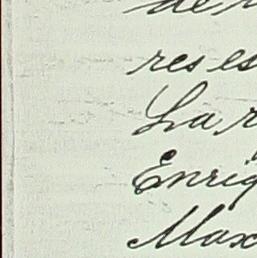 de
res es
La r
Enriq
Max